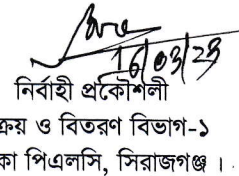 16/03/23
নির্বাহী প্রকৌশলী
ক্রয় ও বিতরণ বিভাগ-১
কা পিএলসি, সিরাজগঞ্জ ।